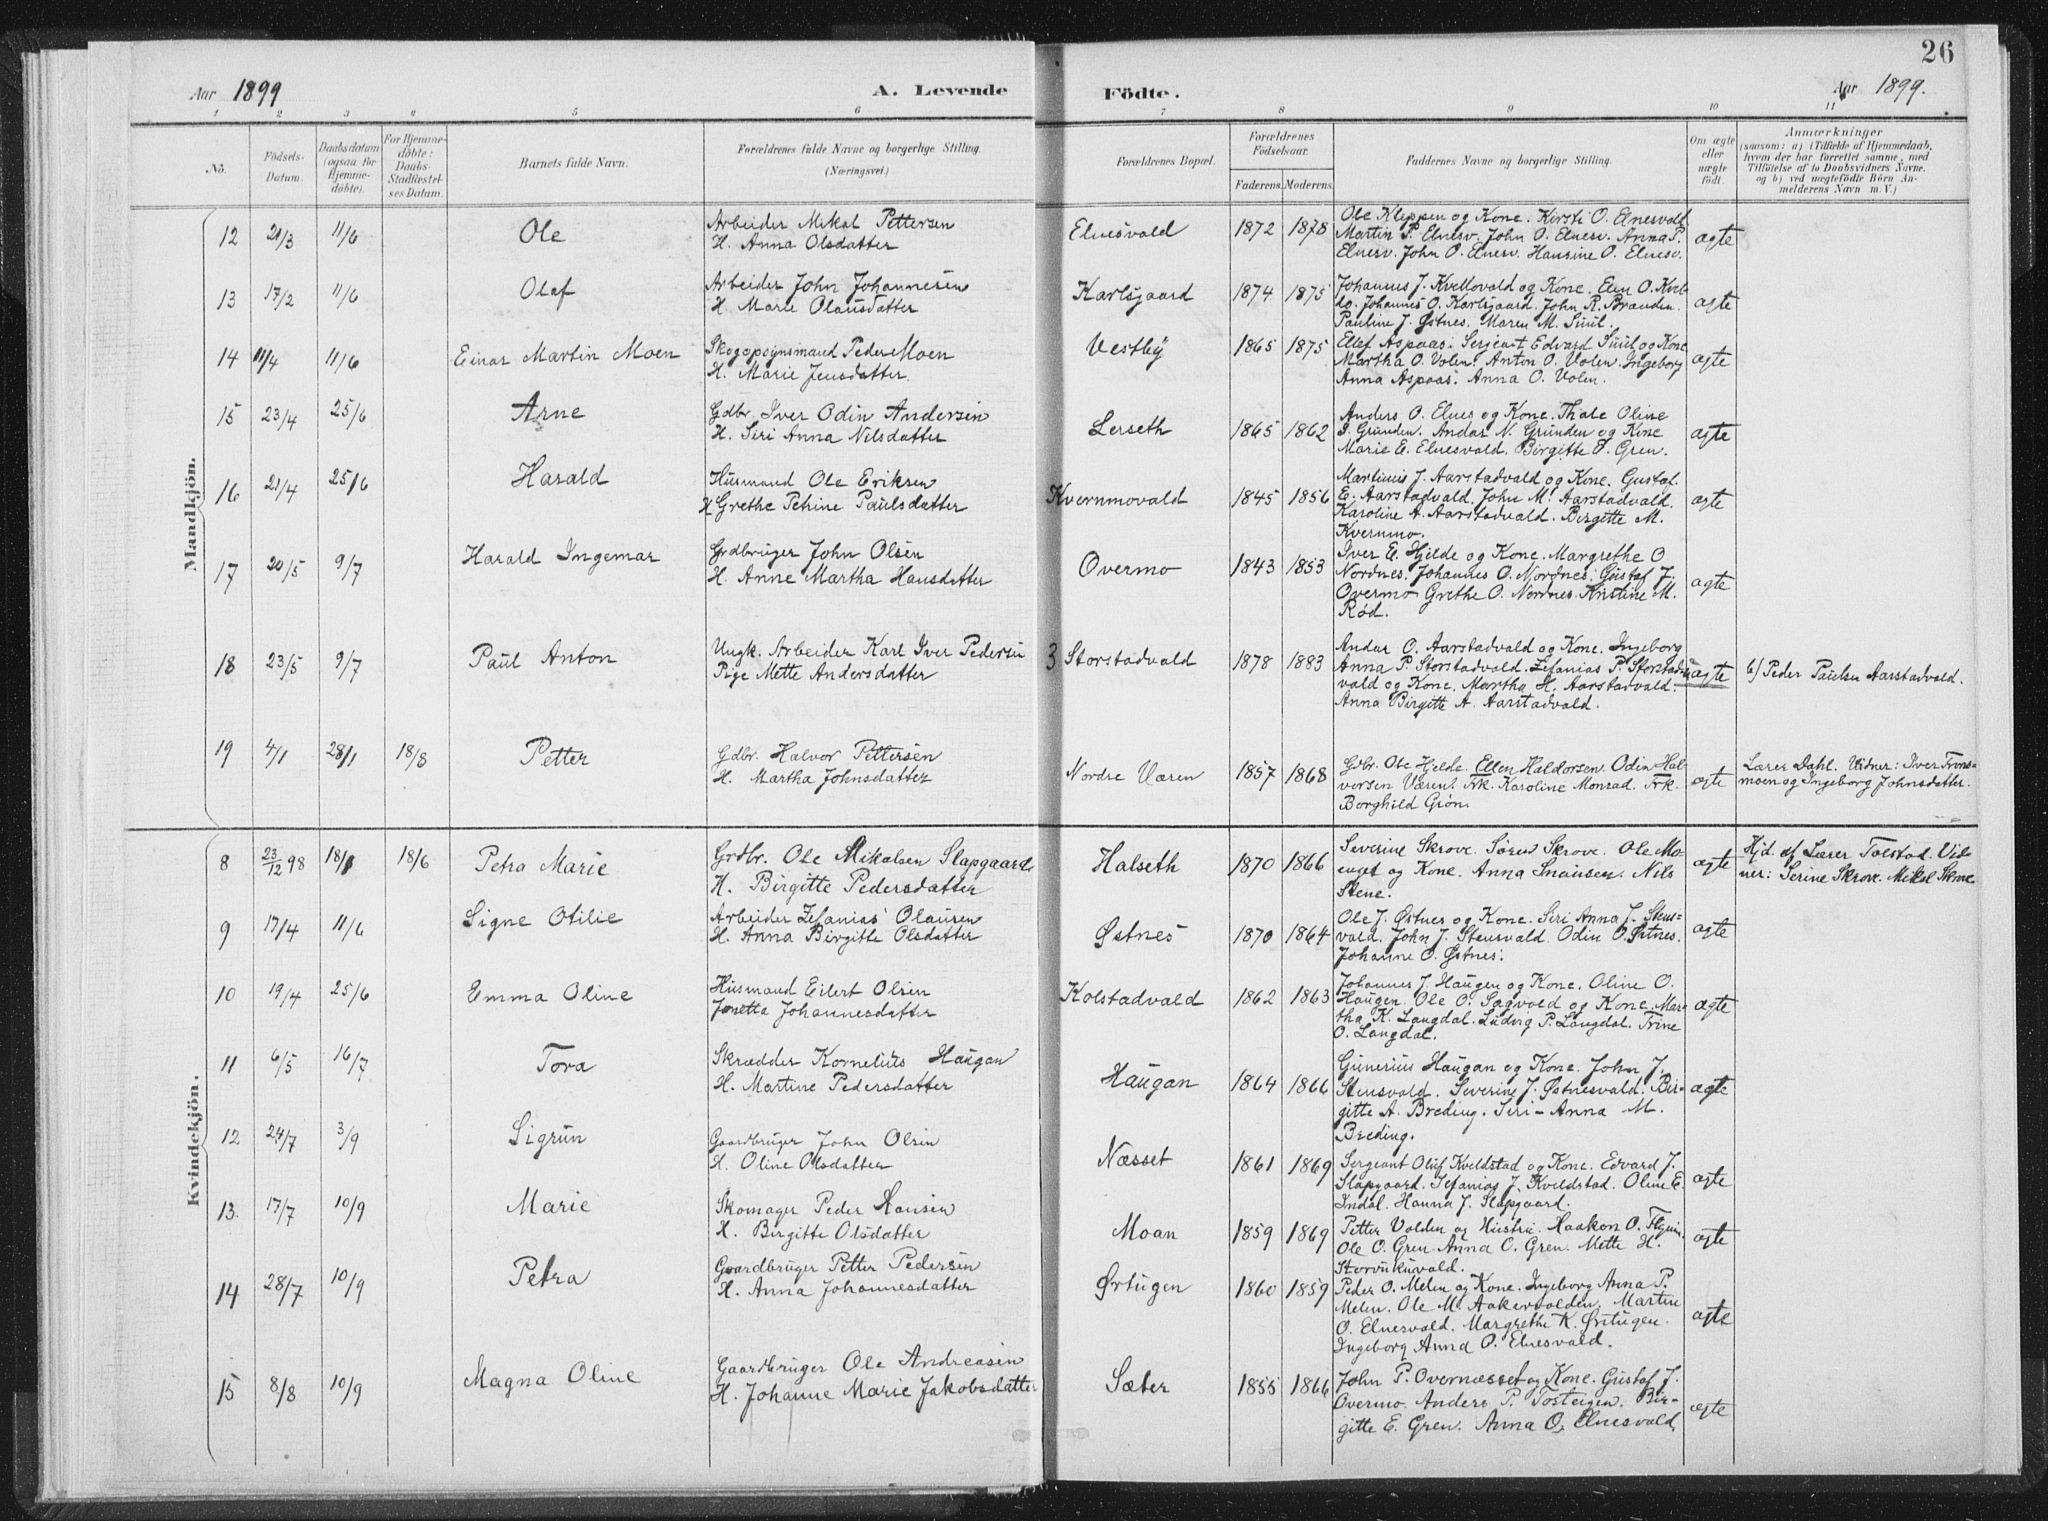 26
Aar 1899 A. Levende Födte. Aar 1899.
1 2 3 4 5 6 7 8 9 10 11
No. Födsels-Datum. Daabsdatum (ogsaa for Hjemmedöbte). For Hjemmedöbte: Daabs-Stadfæstelses Datum. Barnets fulde Navn. Forældrenes fulde Navne og borgerlige Stilling. (Næringsvei.) Forældrenes Bopæl. Forældrenes Födselsaar. Faderens. Moderens. Faddernes Navne og borgerlige Stilling. Om ægte eller uægte födt. Anmærkninger (saasom: a) i Tilfælde af Hjemmedaab, hvem der har forrettet samme, med Tilföielse af to Daabsvidners Navne. og b) ved uægtefödte Börn Anmelderens Navn m. V.)
Mandkjön.
12 21/3 11/6 Ole Arbeider Mikal Pettersen
H. Anna Olsdatter Elnesvald 1872 1878 Ole Kleppen og Kone. Kirsti O. Elnesvald
Martin P. Elnesv. John O. Elnesv. Anna P.
Elnesv. John O. Elnesv. Hansine O. Elnesv. ægte
13 17/2 11/6 Olaf Arbeider John Johannesen
H. Marie Olausdatter Karlsgaard 1874 1875 Johannes J. Kvellovald og Kone. Elen O. Kvel-
lo. Johannes O. Karlsgaard. John R. Brænden.
Pauline J. Østnes. Maren M. Suul. ægte
14 11/4 11/6 Einar Martin Moen Skogopsynsmand Peder Moen
H. Marie Jensdatter. Vestby 1865 1875 Ellef Aspaas. Sergeant Edvard Suul og Kone
Martha O. Volen. Anton O. Volen. Ingeborg
Anna Aspaas. Anna O. Volen. ægte
15 23/4 25/6 Arne Gdbr. Iver Odin Andersen
H. Siri Anna Nilsdatter Lerseth 1865 1862 Anders O. Elnes og Kone. Thale Oline
S. Grunden. Andas N. Grunden og Kone
Marie E. Elnesvald. Birgitte O. Gren. ægte
16 21/4 25/6 Harald Husmand Ole Eriksen
H. Grethe Petrine Paulsdatter Kvernmovald 1845 1856 Martinus J. Aarstadvald og Kone. Gustaf
E. Aarstadvald. John M. Aarstadvald.
Karoline A. Aarstadvald. Birgitte M.
Kvernmo. ægte
17 20/5 9/7 Harald Ingemar Grdbruger John Olsen
H. Anne Martha Hansdatter Overmo 1843 1853 Iver E. Hjelde og Kone. Margrethe O
Nordnes. Johannes O. Nordnes. Gustaf J.
Overmo Grethe O. Nordnes. Kristine M.
Rød. ægte
18 23/5 9/7 Paul Anton Ungk. Arbeider Karl Iver Pedersen
Pige Mette Andersdatter 3 Storstadvald 1878 1883 Andar O. Aarstadvald og Kone. Ingeborg
Anna P. Storstadvald. Zefanias P. Storstad-
vald og Kone. Martha H. Aarstadvald.
Anna Birgitte A. Aarstadvald. uægte b/ Peder Paulsen Aarstadvald.
19 4/1 28/1 18/8 Petter Gdbr. Halvor Pettersen
H. Martha Johnsdatter Nordre Væren 1857 1868 Gdbr. Ole Hjelde. Ellen Haldorsen. Odin Hal-
vorsen Væren. Frk. Karoline Monrad. Frk.
Borghild Grøn. ægte Lærer Dahl. Vidner: Iver
moen og Ingeborg Johnsdatter.
Kvindekjön.
8 23/12 98 18/1 18/6 Petra Marie Grdbr. Ole Mikalsen Slapgaard
H. Birgitte Pedersdatter Halseth 1870 1866 Severine Skrove. Søren Skrove. Ole Mo-
enget og Kone. Anna Snausen. Nils
Stene. ægte Hjd. af Lærer Tolstad. Vid-
ner: Serine Skrove. Mikal Skrove
9 17/4 11/6 Signe Otilie Arbeider Zefanias Olausen
H. Anna Birgitte Olsdatter Østnes 1870 1864 Ole J. Østnes og Kone. Siri Anna J. Stens-
vald. John J. Stensvald. Odin O. Østnes.
Johanne O. Østnes. ægte
10 19/4 25/6 Emma Oline Husmand Eilert Olsen
Jonetta Johannesdatter Kolstadvald 1862 1863 Johannes J. Haugen og Kone. Oline O.
Haugen. Ole O. Sagvold og Kone. Mar-
tha K. Langdal. Ludvig P. Langdal. Trine
O. Langdal. ægte
11 6/5 16/7 Tora Skrædder Kornelius Haugan
H. Martine Pedersdatter Haugan 1864 1866 Gunerius Haugan og Kone. John J.
Stensvald. Severine J. Østnesvald. Bir-
gitte A. Breding. Siri-Anna M.
Breding. ægte
12 24/7 3/9 Sigrun Gaardbruger John Olsen
H. Oline Olsdatter Næsset 1861 1869 Sergeant Oluf Kveldstad og Kone. Edvard J.
Slapgaard. Zefanias J. Kveldstad. Oline E.
Indal. Hanna J. Slapgaard. ægte
13. 17/7 10/9 Marie Skomager Peder Hansen
H. Birgitte Olsdatter Moan 1859 1869 Petter Volden og Hustru. Haakon O.
Ole O. Gren. Anna O. Gren. Mette H.
Storvukuvald. ægte
14 28/7 10/9 Petra Gaardbruger Petter Pedersen
H. Anna Johannesdatter Ørtugen 1860 1859 Peder O. Melen og Kone. Ingeborg Anna P.
Melen. Ole M. Aakervolden. Martin
O. Elnesvald. Margrethe K. Ørtugen.
Ingeborg Anna O. Elnesvald. ægte
15 8/8 10/9 Magna Oline Gaardbruger Ole Andreasen
H. Johanne Marie Jakobsdatter Sæter 1855 1866 John P. Overnæsset og Kone. Gustaf J.
Overmo. Anders P. Tosteigen. Bir-
gitte E. Gren. Anna O. Elnesvald. ægte